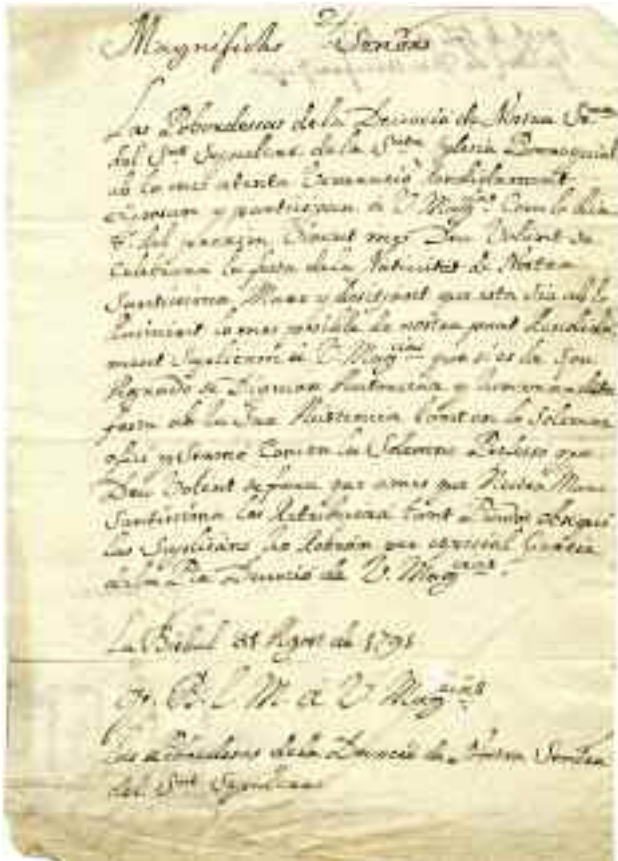 Magnifichs Señors
Las Pabordessas de la Devocio de Nostra Sra
del Snt Sepulcre de la Snta Iglesia Parroquial
ab la mes atenta Veneracio
y participan á V. Magcias Com lo dia
8 del Deu Volent se
Celebrara la festa de la Nativitat de Nostra
Santissima Mare y desitjant que esta sia ab lo
lluiment la mes posible de nostra part
ment Suplicam á V. Magcias que si es de Son
Agrado se Dignian Ilustrarla y
festa ab la Sua Asistencia tant en lo Solemne
ofici y Sermó Com en la Solemne Professo que
Deu Volent se fara que a mes que Nostra Mare
Santissima los Retribuira tant obsequi
las Suplicans ho Rebran per especial Gracia
de la Pia Devocio de V. Magcias
La Bisbal 31 Agost de 1791
Q. B. L. M. á V. Magcias
Las Pabordesas de la Devocio de Nostra Señora
del Snt Sepulcre